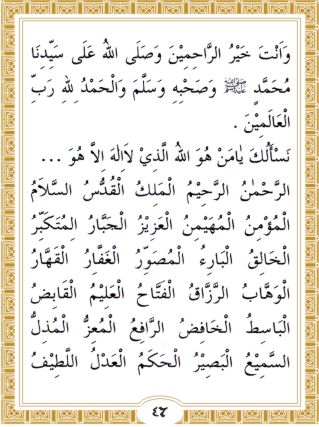 وَاَنْتَ خَيْرُ الرَّاحِمِيْنَ وَصَلَى اللهُ عَلَى سَيِّدِنَا
مُحَمَّدٍ ﷺ وَصَحْبِهِ وَسَلَّمَ وَالْحَمْدُ لِلهِ رَبِّ
الْعَالَمِيْنَ .
نَسْأَلُكَ يٰامَنْ هُوَ اللهُ الَّذِيْ لَااِلٰهَ اِلاَّ هُوَ ...
الرَّحْمٰنُ الرَّحِيْمُ الْمَلِكُ الْقُدُّسُ السَّلَامُ
الْمُؤْمِنُ الْمُهَيْمِنُ الْعَزِيْزُ الْجَبَّارُ الْمُتَكَبِّرُ
الْخَالِقُ الْبَارِءُ الْمُصَوِّرُ الْغَفَّارُ الْقَهَّارُ
الْوَهَّابُ الرَّزَّاقُ الْفَتَّاحُ الْعَلِيْمُ الْقَابِضُ
الْبَاسِطُ الْخَافِضُ الرَّافِعُ الْمُعِزُّ الْمُذِلُّ
السَّمِيْعُ الْبَصِيْرُ الْحَكَمُ الْعَدْلُ اللَّطِيْفُ
٤٦